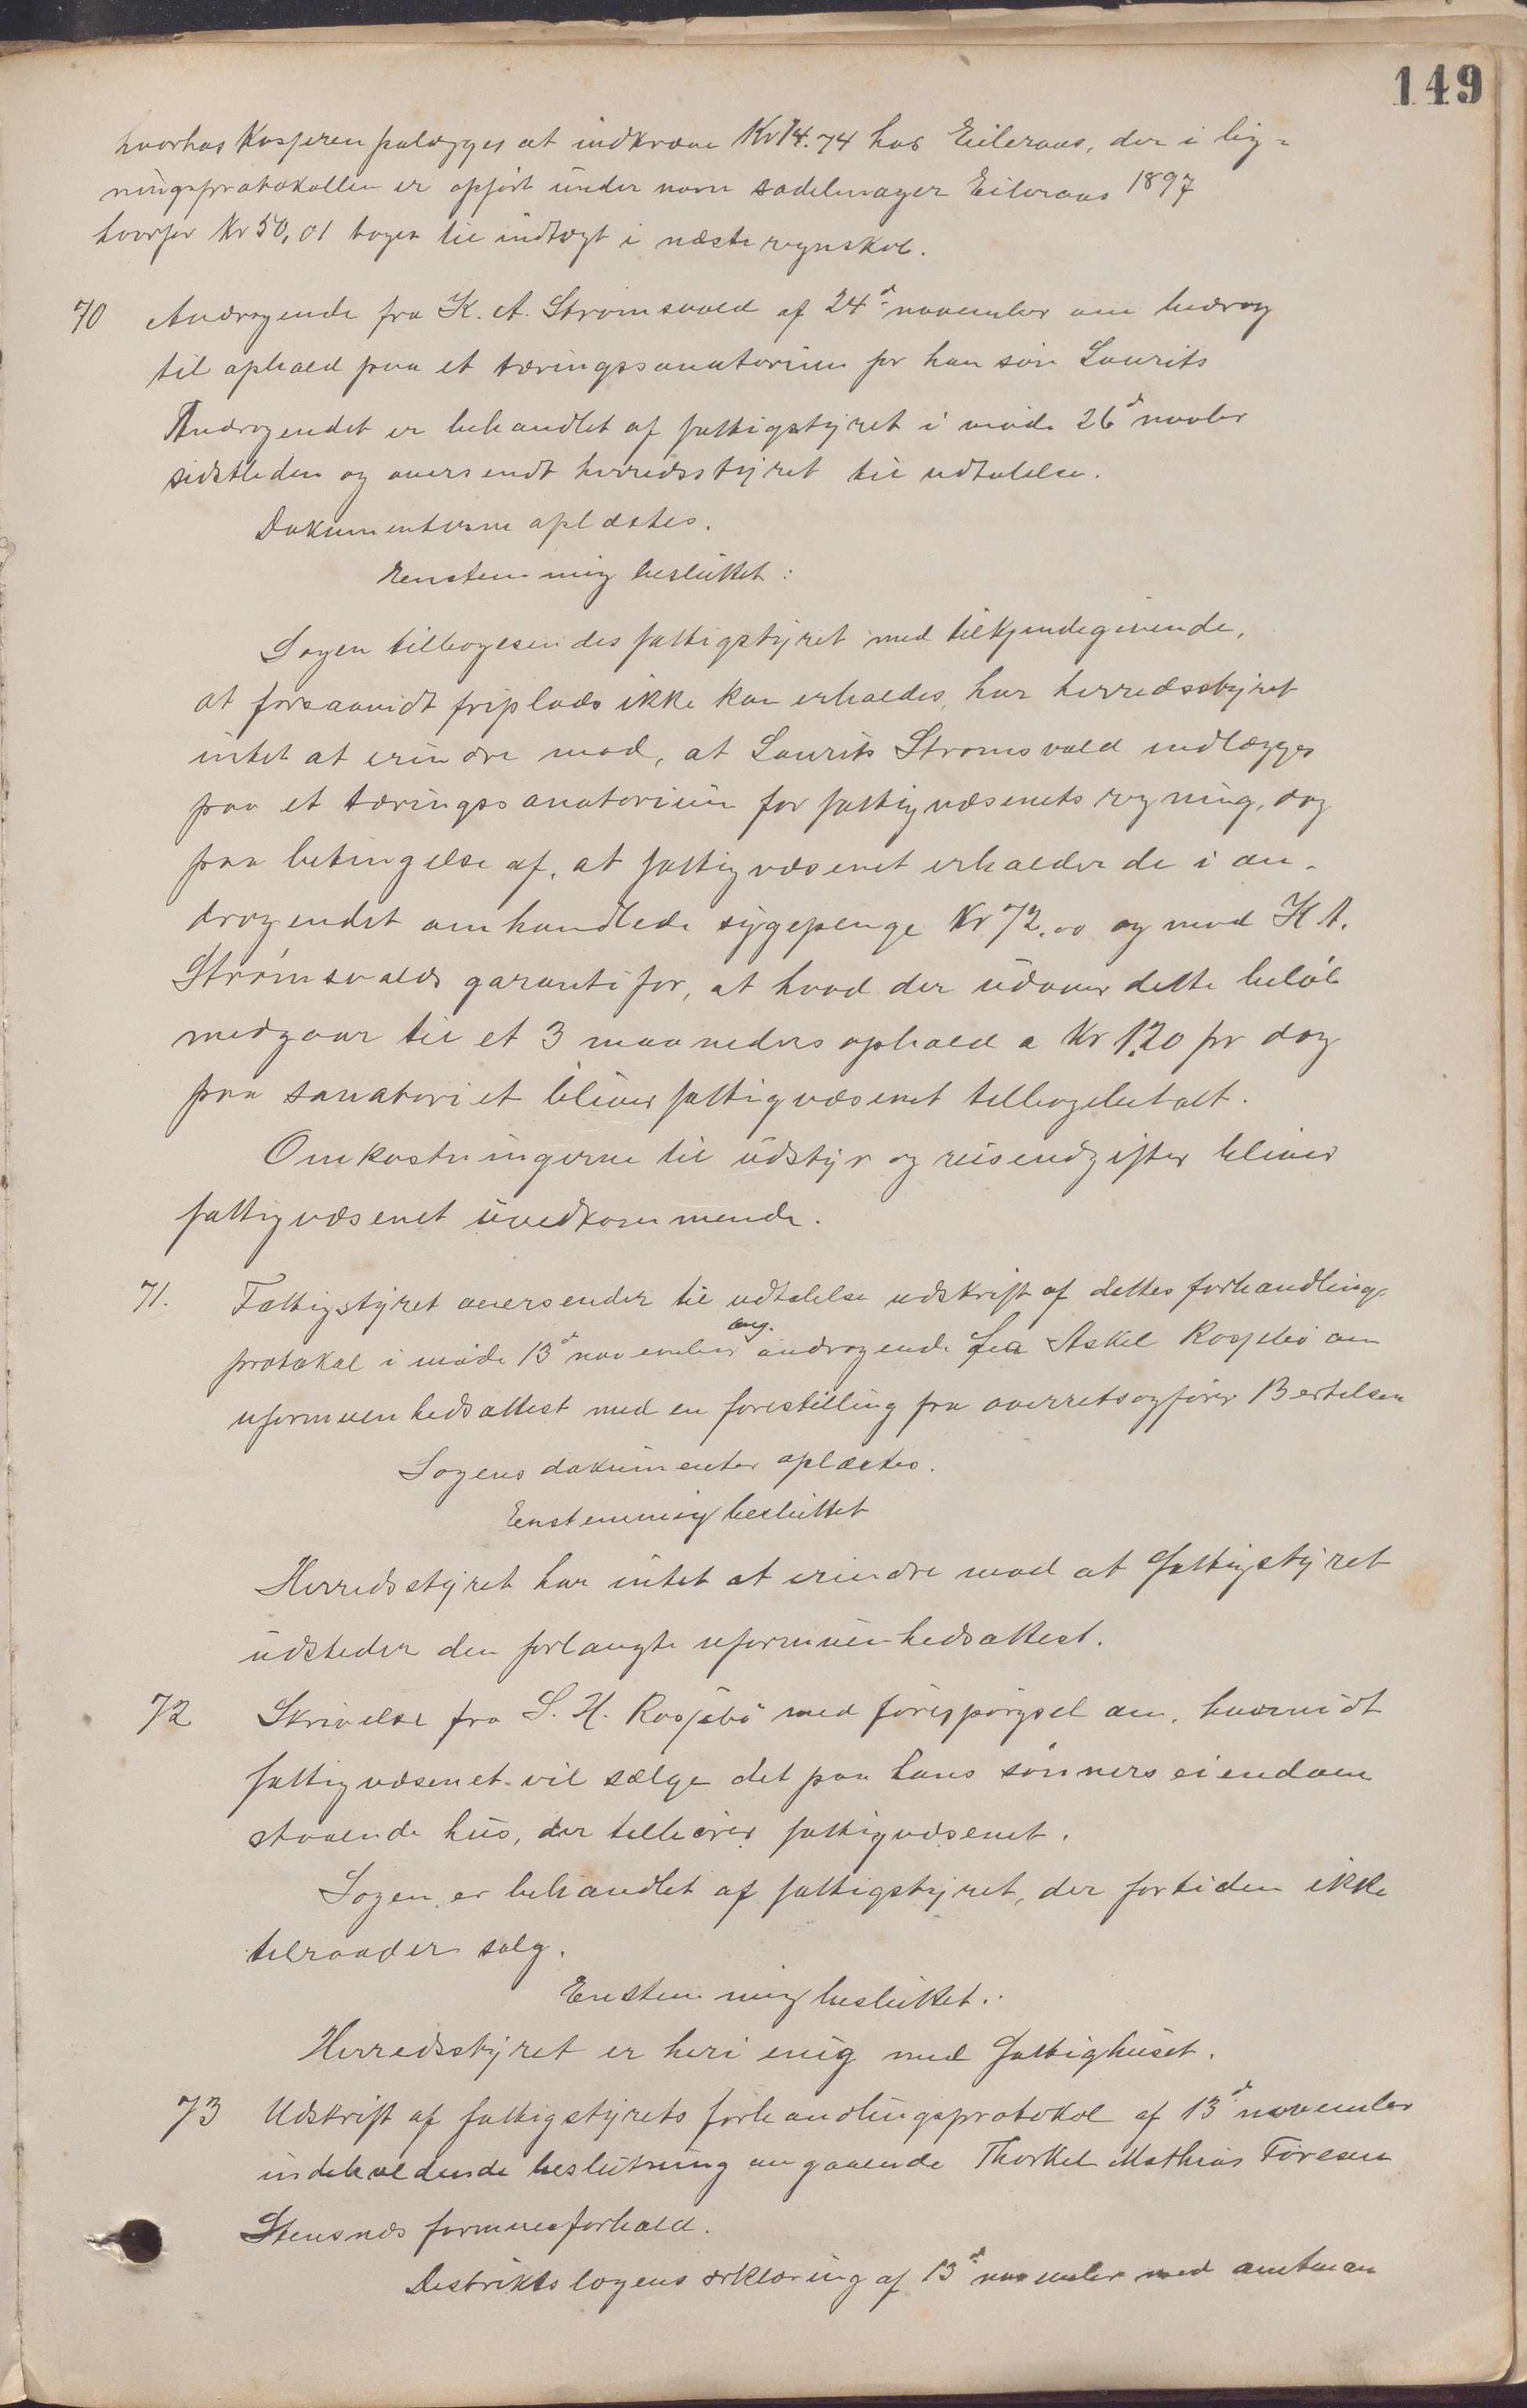 149
hvorhos Kasseren paalægges at indkræve Kr 14.74 hos Eileraas, der i lig-
ningsprotokollen er opført under navn sadelmager Eileraas 1897
hvorfor Kr 50,01 tages til indtægt i næste regnskab.
70 Andragende fra K. A. Strømsvold af 24d november om bidrag
til ophold paa et tæringssanatorium for han søn Laurits
Andragendet er behandlet af fattigstyret i møde 26d novbr
sidstleden og oversendt herredsstyret til udtalelse.
Dokumenterne oplæstes.
Eenstemmig besluttet:
Sagen tilbagesendes fattigstyret med tilkjendegivende,
at forsaavidt friplads ikke kan erholdes, har herredsstyret
intet at erindre mod, at Laurits Strømsvold indlægges
paa et tæringssanatorium for fattigvæsenets regning, dog
paa betingelse af, at fattigvæsenet erholder de i an-
dragendet omhandlede sygepenge Kr 72.00 og mod K A.
Strømsvolds garanti for, at hvad der udover dette beløb
medgaar til et 3 maaneders ophold a Kr 1.20 pr dag
paa sanatoriet bliver fattigvæsenet tilbagebetalt.
Omkostningerne til udstyr og reiseudgifter bliver
fattigvæsenet uvedkommende.
71. Fattigstyret oversender til udtalelse udskrift af dettes forhandlings
protokol i møde 13d november ang. andragende fra Askel Rosjebø om
uformuenhedsattest med en forestilling fra overretsagfører Bertelsen
Sagens dokumenter oplæstes.
Enstemmig besluttet
Herredsstyret har intet at erindre mod at fattigstyret
udsteder den forlangte uformuenhedsattest.
72 Skrivelse fra S. H. Rosjebø med forespørgsel om, hvorvidt
fattigvæsenet vil sælge det paa hans sønners eiendom
staaende hus, der tilhører fattigvæsenet.
Sagen er behandlet af fattigstyret, der fortiden ikke
tilraader salg.
Enstemmig besluttet.
Herredsstyret er heri enig med fattighuset.
73 Udskrift af fattigstyrets forhandlingsprotokol af 13d november
indeholdende beslutning angaaende Thorkel Mathias Toresen
Stensnes formuesforhold.
Distriktslægens erklæring af 13d november med amtman